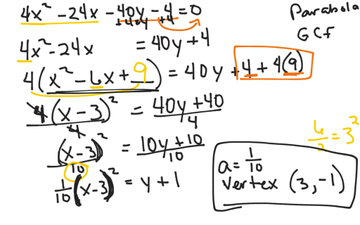 4x² - 24x - 40y - 4 = 0
+40y +4
Parabola
GCF
4x² - 24x = 40y + 4
4(x² - 6x + 9) = 40y + 4 + 4(9)
4(x - 3)² / 4 = 40y + 40 / 4
6/2 = 3²
(x - 3)² / 10 = 10y + 10 / 10
1/10 (x - 3)² = y + 1
a = 1/10
Vertex (3, -1)